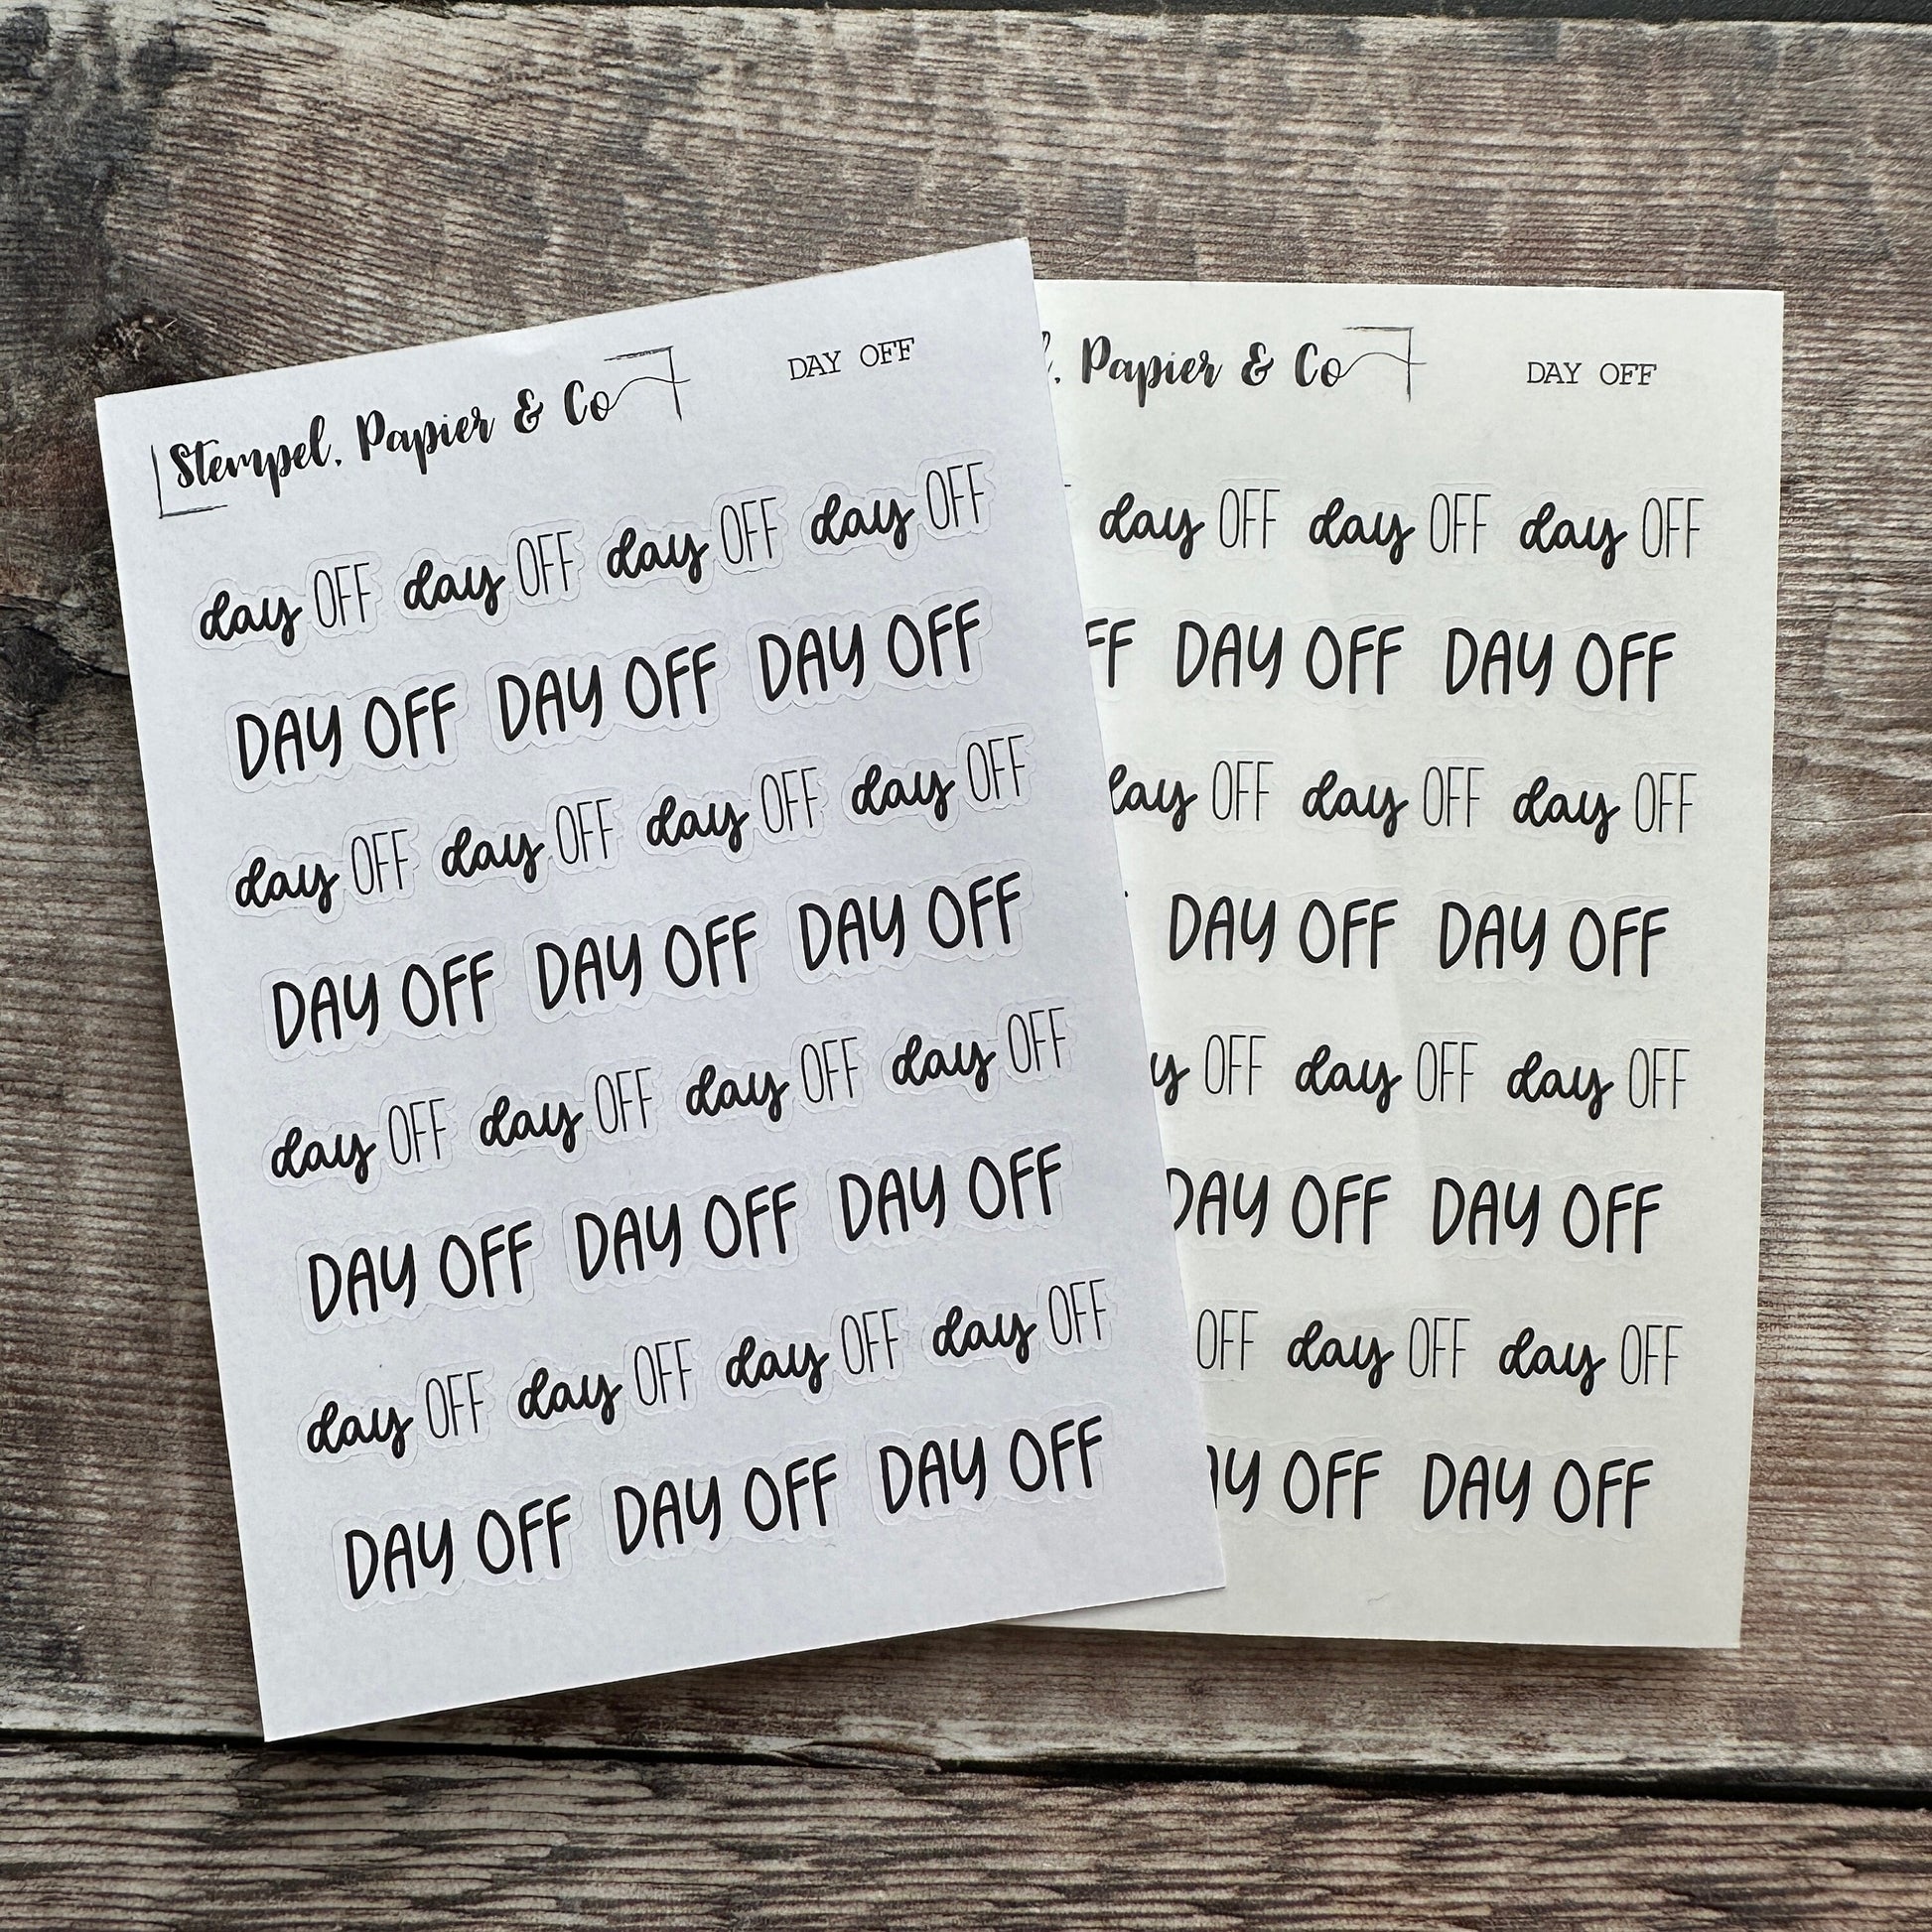 Stempel, Papier & Co DAY OFF
day OFF day OFF day OFF day OFF
DAY OFF DAY OFF DAY OFF
day OFF day OFF day OFF day OFF
DAY OFF DAY OFF DAY OFF
day OFF day OFF day OFF day OFF
DAY OFF DAY OFF DAY OFF
day OFF day OFF day OFF day OFF
DAY OFF DAY OFF DAY OFF
Papier & Co DAY OFF
day OFF day OFF day OFF
DAY OFF DAY OFF
OFF day OFF day OFF
DAY OFF DAY OFF
OFF day OFF day OFF
DAY OFF DAY OFF
OFF day OFF day OFF
OFF DAY OFF